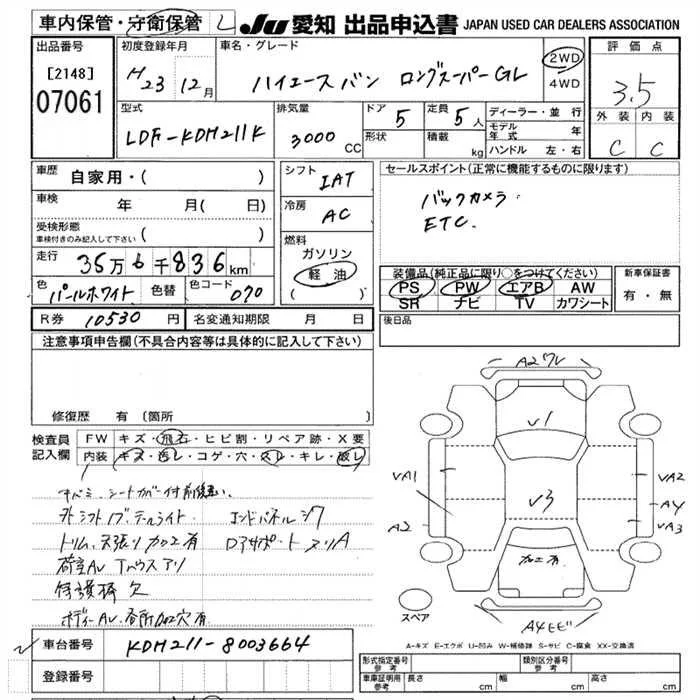 車内保管・守衛保管 L JU 愛知 出品申込書 JAPAN USED CAR DEALERS ASSOCIATION
出品番号 初度登録年月 車名・グレード 評価点
[2148] H23 12月 ハイエースバン ロングスーパーGL 2WD 4WD 3.5
07061
型式 排気量 ドア 5 定員 5人 ディーラー・並行 外装 内装
LDF-KDH211K 3000CC 形状 積載 kg モデル年式 年 C C
ハンドル 左・右
車歴 自家用・( ) シフト IAT セールスポイント(正常に機能するものに限ります)
車検 年 月( 日) 冷房 AC バックカメラ
受検形態 ( ) ETC.
車検付きのみ記入して下さい
燃料
走行 35万6千836km ガソリン 装備品(純正品に限り○をつけてください) 新車保証書
軽油 PS PW エアB AW 有・無
色 パールホワイト 色替 色コード 070 ( ) SR ナビ TV カワシート
R券 10530円 名変通知期限 月 日 後日品
注意事項申告欄(不具合内容等は具体的に記入して下さい)
修復歴 有 (箇所
検査員記入欄 FW キズ・飛石・ヒビ割・リペア跡・X要
内装 キズ・汚レ・コゲ・穴・スレ・キレ・破レ
シートカバー付
外シフトノブ、テールライト エンドパネル
トリム、天張り加工有 Dアサポート
荷室AV
欠
ボディーAV、各所加工穴有
A2ワレ
V1
VA1 VA2
V3 A4
A2 VA3
加工有
スペア
A4
A-キズ E-エクボ U-凹み W-補修跡 S-サビ C-腐食 XX-交換済
車台番号 KDH211-8003664
登録番号
形式指定番号 参考 類別区分番号 参考
車庫証明用 参考 長さ cm 幅 cm 高さ cm